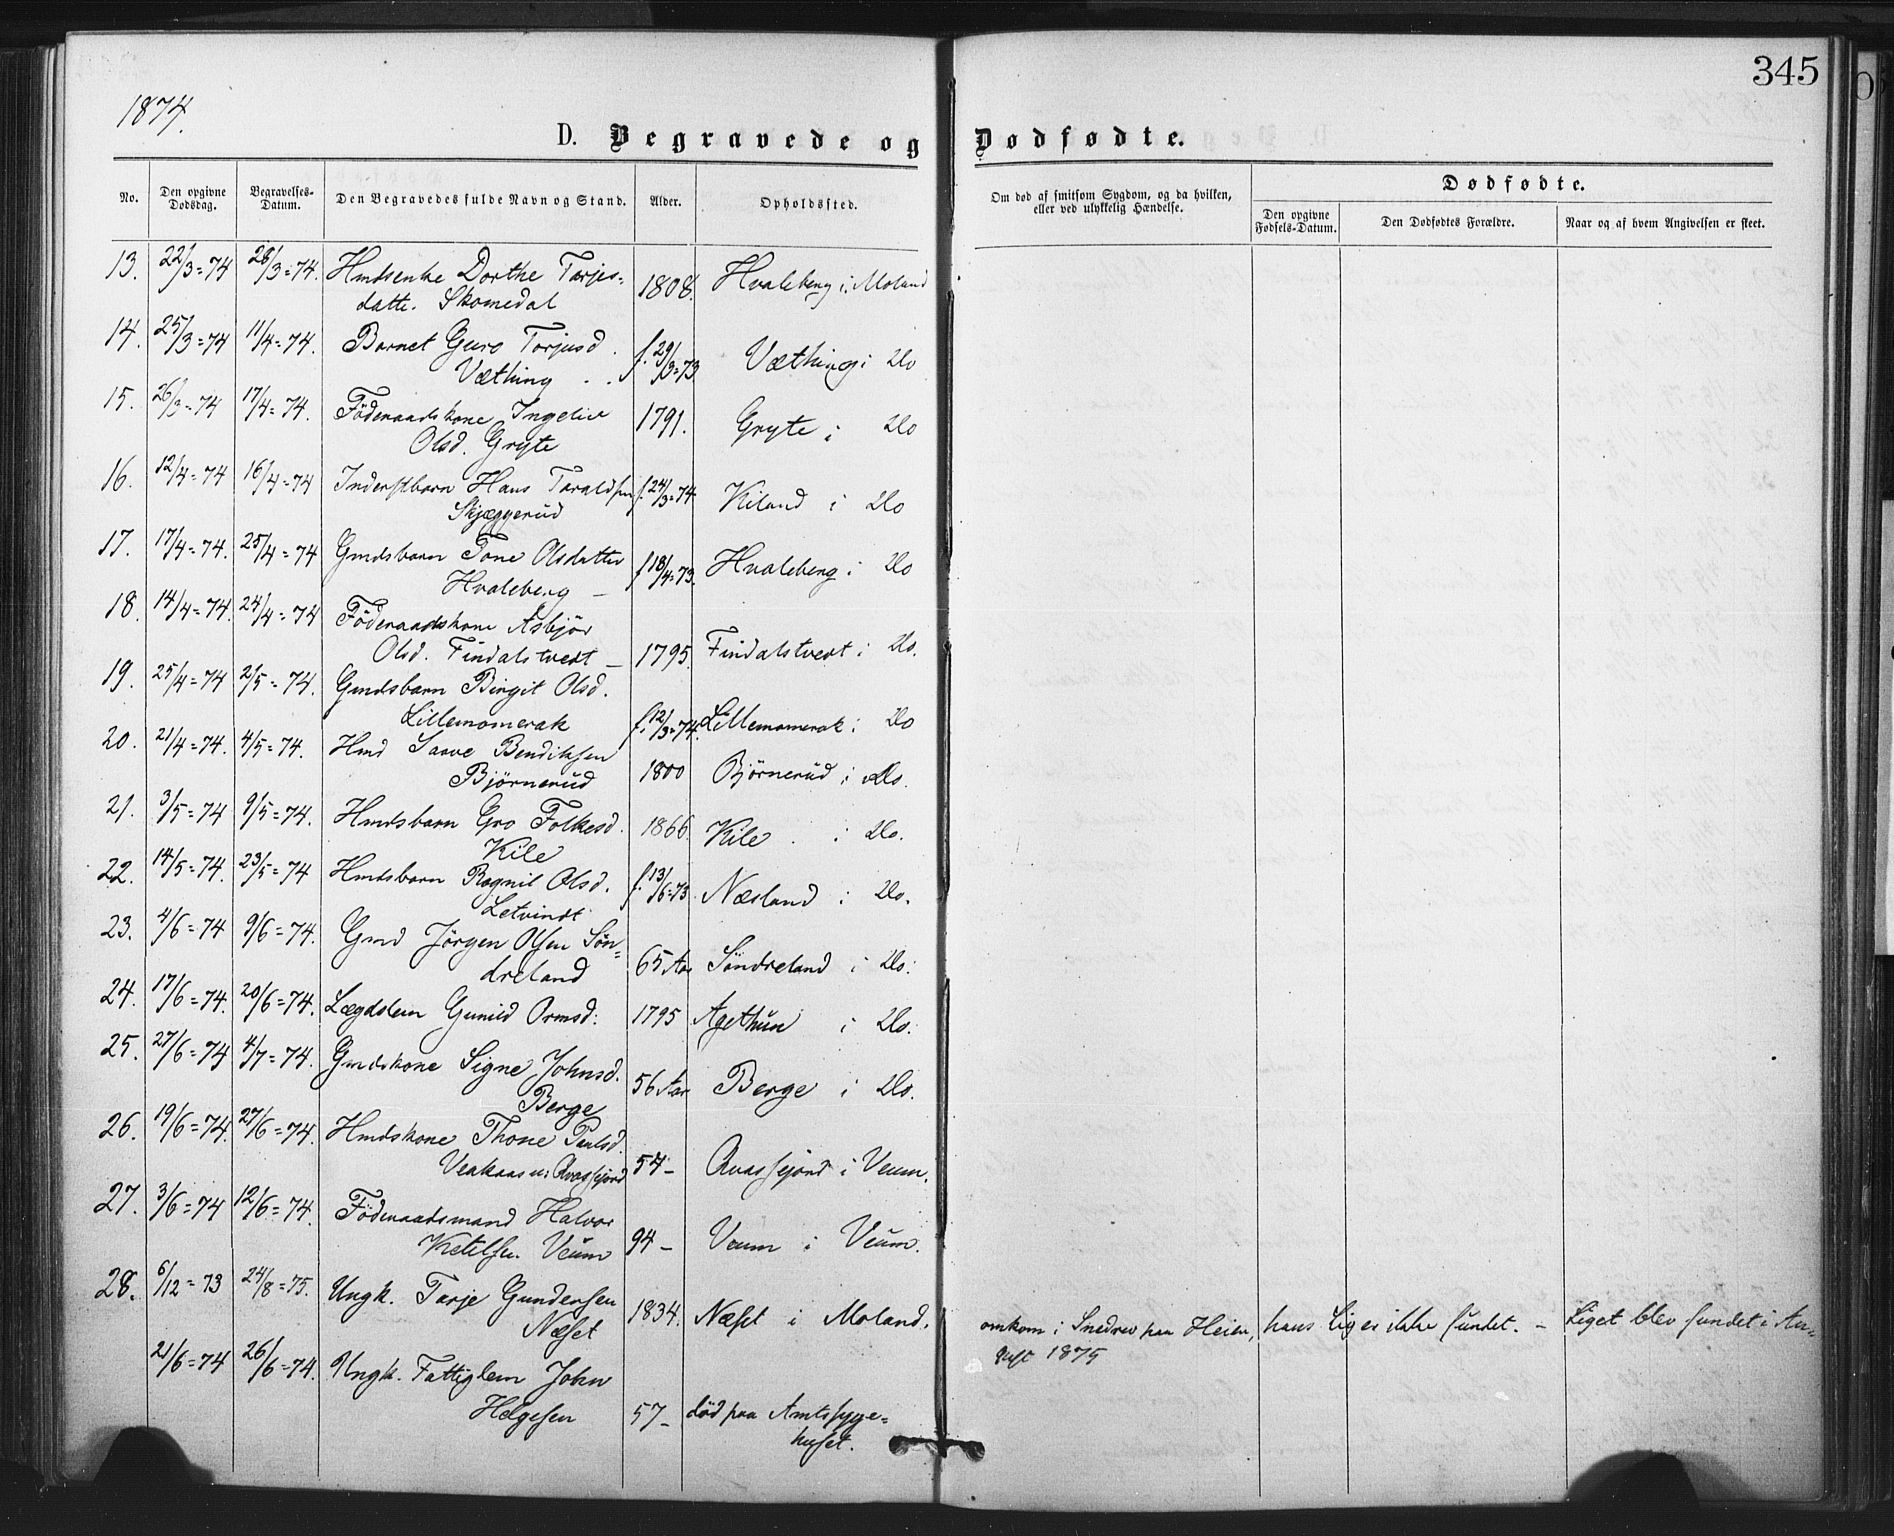 345
1874.
D. Begravede og Dødfødte.
No.
Den opgivne Dødsdag.
Begravelses-Datum.
Den Begravedes fulde Navn og Stand.
Alder.
Opholdssted.
Om død af smitsom Sygdom, og da hvilken, eller ved ulykkelig Hændelse.
Dødfødte.
Den opgivne Fødsels-Datum.
Den Dødfødtes Forældre.
Naar og af hvem Angivelsen er skeet.
13. 22/3=74 28/3=74. Hmdsenke Dorthe Tarjes=
datte. Skomedal 1808. Hvaleberg i Moland
14. 25/3=74 11/4=74. Barnet Guro Torjusd.
Væthing f. 29/3=73 Væthing i Do
15. 26/3=74 17/4=74. Föderaadskone Ingeliv
Olsd. Gryte 1791. Gryte i Do
16. 12/4=74 16/4=74 Inderstbarn Hans Taraldsen
Skjæggerud f. 24/3=74 Kiland i Do
17. 17/4=74. 25/4=74 Gmdsbarn Tone Olsdatter
Hvaleberg f 18/4=73. Hvaleberg i Do
18. 14/4=74. 24/4=74 Föderaadskone Asbjör
Olsd. Findalstvedt 1795. Findalstvedt i Do.
19. 25/4=74 2/5=74. Gmdsbarn Birgit Olsd.
Lillemomerak f. 12/3=74. Lillemomerak i Do
20. 21/4=74. 4/5=74. Hmd Saave Bendiksen
Bjørnerud 1800 Bjørnerud i Do.
21. 3/5=74 9/5=74. Hmdsbarn Gro Folkesd.
Kile 1866. Kile i Do.
22. 14/5=74. 23/5=74 Hmdsbarn Ragnil Olsd.
Letvindt f. 13/6=73 Næsland i Do.
23. 4/6=74 9/6=74. Gmd Jörgen Olsen Søn=
dreland 65 Aar Söndreland i Do.
24. 17/6=74. 20/6=74. Lægdslem Gunild Ormsd: 1795 Agethun i Do.
25. 27/6=74 4/7=74. Gmdskone Signe Johnsd.
Berge 56 Aar Berge i Do.
26. 19/6=74. 27/6=74. Hmdskone Thone Paulsd.
Veakaasen: Qvassfjord 54- Qvassfjord i Veum.
27. 3/6=74 12/6=74. Föderaadsmand Halvor
Ketilsen Veum 94- Veum i Veum.
28. 6/12=73 24/8=75. Ungk. Tarje Gundersen
Næset 1834. Næset i Moland. omkom i Snedrev paa Heien, hans Lig er ikke fundet. - Liget blev fundet i Au=
gust 1875
21/6=74 26/6=74. Ungk. Fattiglem John
Helgesen 57- död paa Amtssyge=
huset.